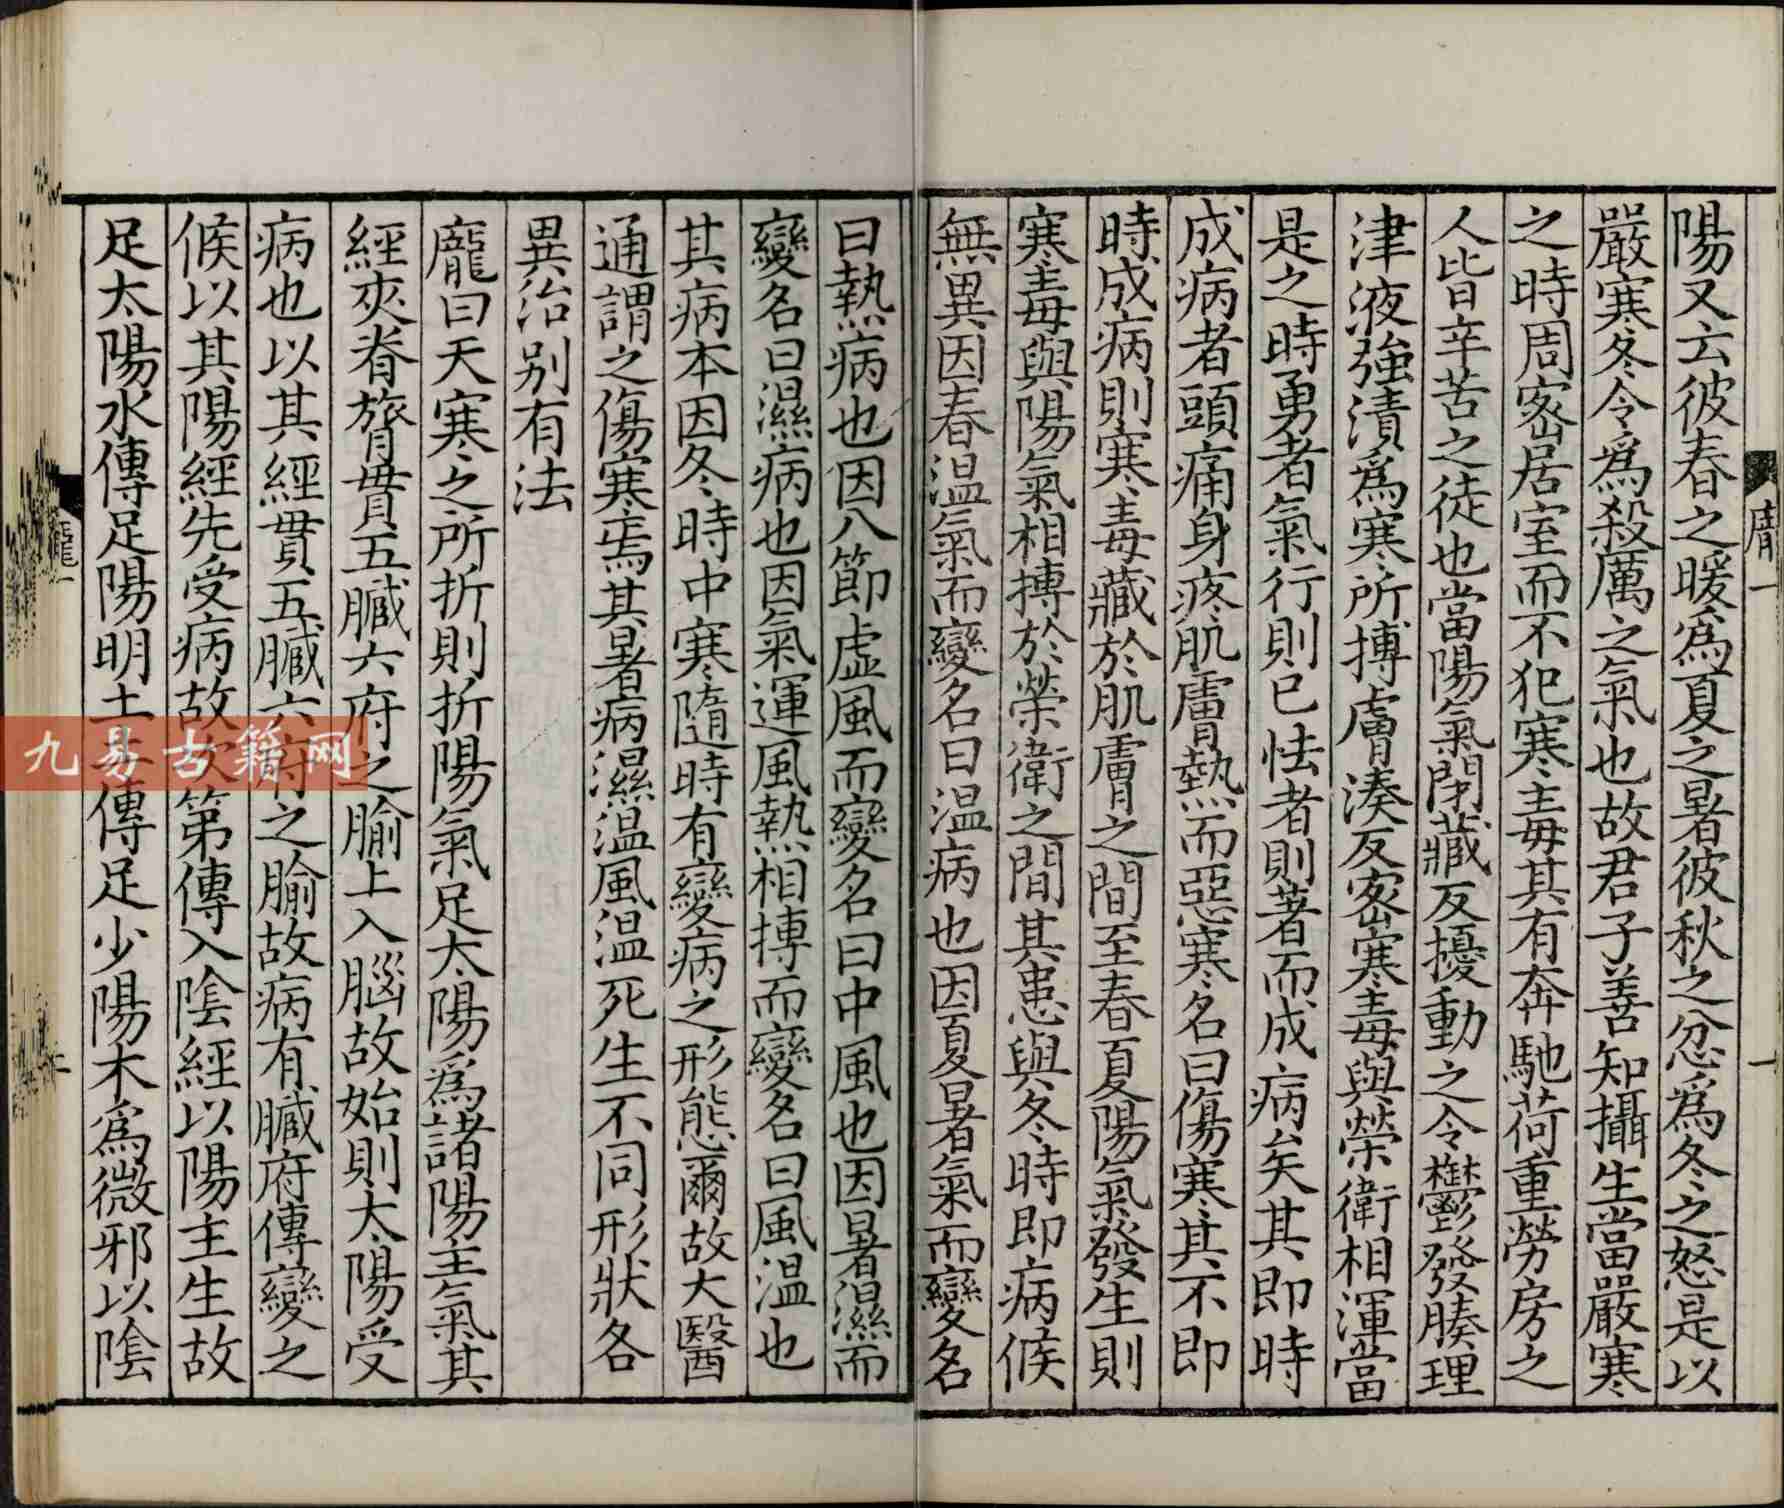 陽又云彼春之暖爲夏之暑彼秋之忿爲冬之怒是以
嚴寒冬令爲殺厲之氣也故君子善知攝生當嚴寒
之時周密居室而不犯寒毒其有奔馳荷重勞房之
人皆辛苦之徒也當陽氣閉藏反擾動之令鬱發腠理
津液強漬爲寒所搏膚湊反密寒毒與榮衛相渾當
是之時勇者氣行則已怯者則著而成病矣其即時
成病者頭痛身疼肌膚熱而惡寒名曰傷寒其不即
時成病則寒毒藏於肌膚之間至春夏陽氣發生則
寒毒與陽氣相搏於榮衛之間其患與冬時即病候
無異因春温氣而變名曰温病也因夏暑氣而變名
曰熱病也因八節虛風而變名曰中風也因暑濕而
變名曰濕病也因氣運風熱相搏而變名曰風温也
其病本因冬時中寒隨時有變病之形態爾故大醫
通謂之傷寒焉其暑病濕温風温死生不同形狀各
異治别有法
龐曰天寒之所折則折陽氣足太陽爲諸陽主氣其
經夾脊膂貫五臟六府之腧上入腦故始則太陽受
病也以其經貫五臟六府之腧故病有臟府傳變之
候以其陽經先受病故次第傳入陰經以陽主生故
足太陽水傳足陽明土土傳足少陽木爲微邪以陰
龐一
一
九易古籍网